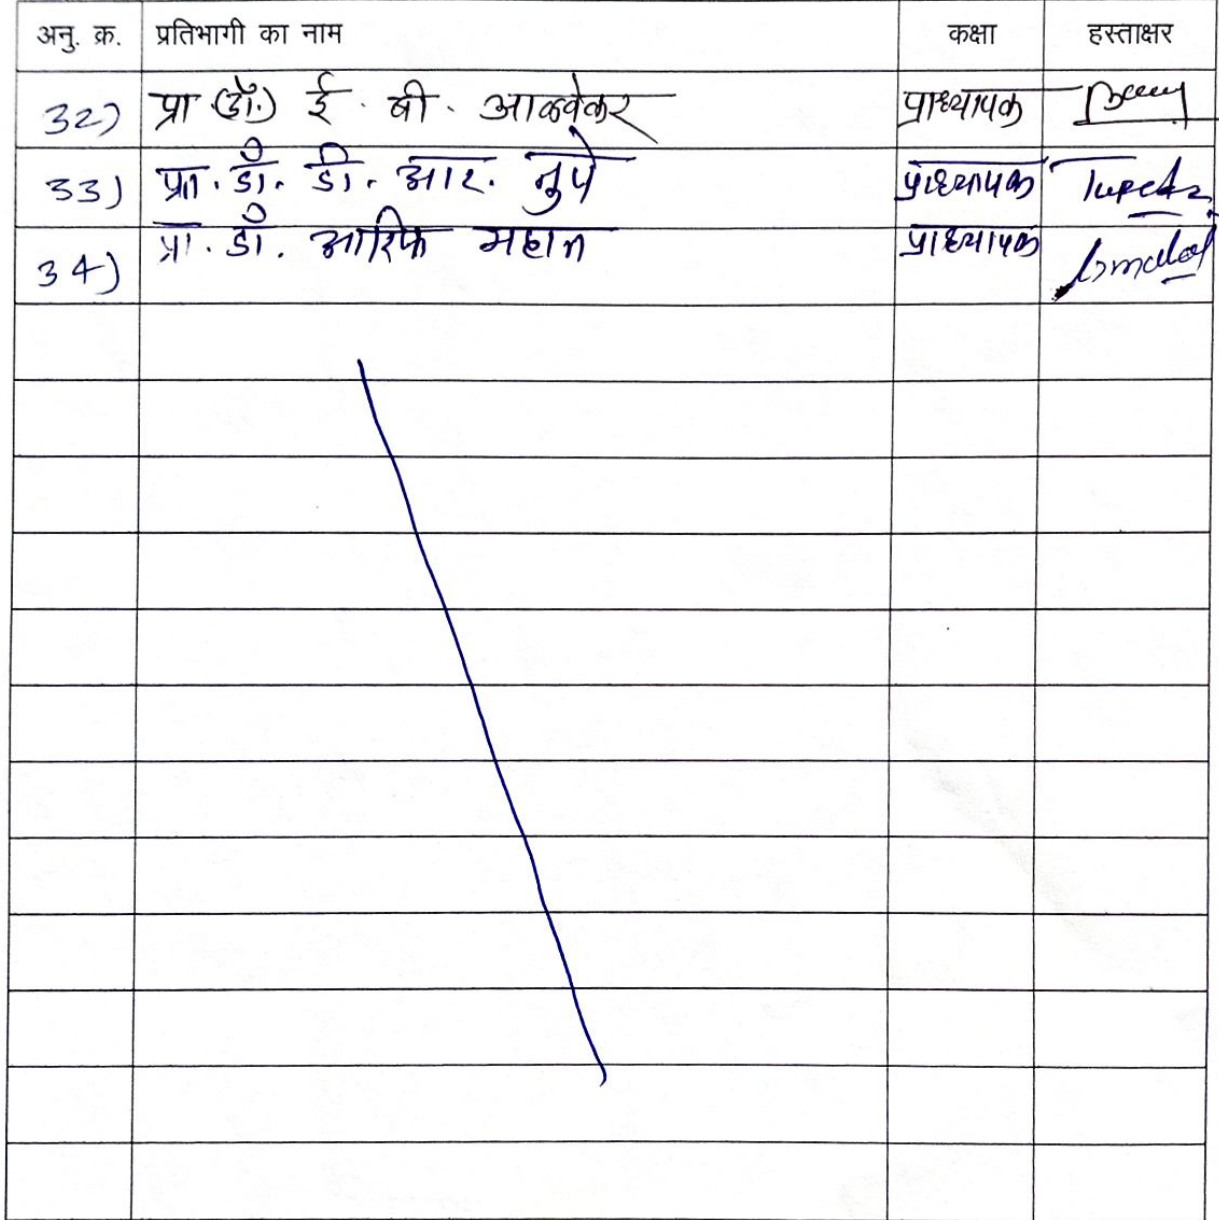 अनु. क्र. प्रतिभागी का नाम कक्षा हस्ताक्षर
32) प्रा (डॉ.) ई. बी. आळवेकर प्राध्यापक
33) प्रा. डॉ. डी. आर. तुपे प्राध्यापक
34) प्रा. डॉ. आरिफ महात प्राध्यापक